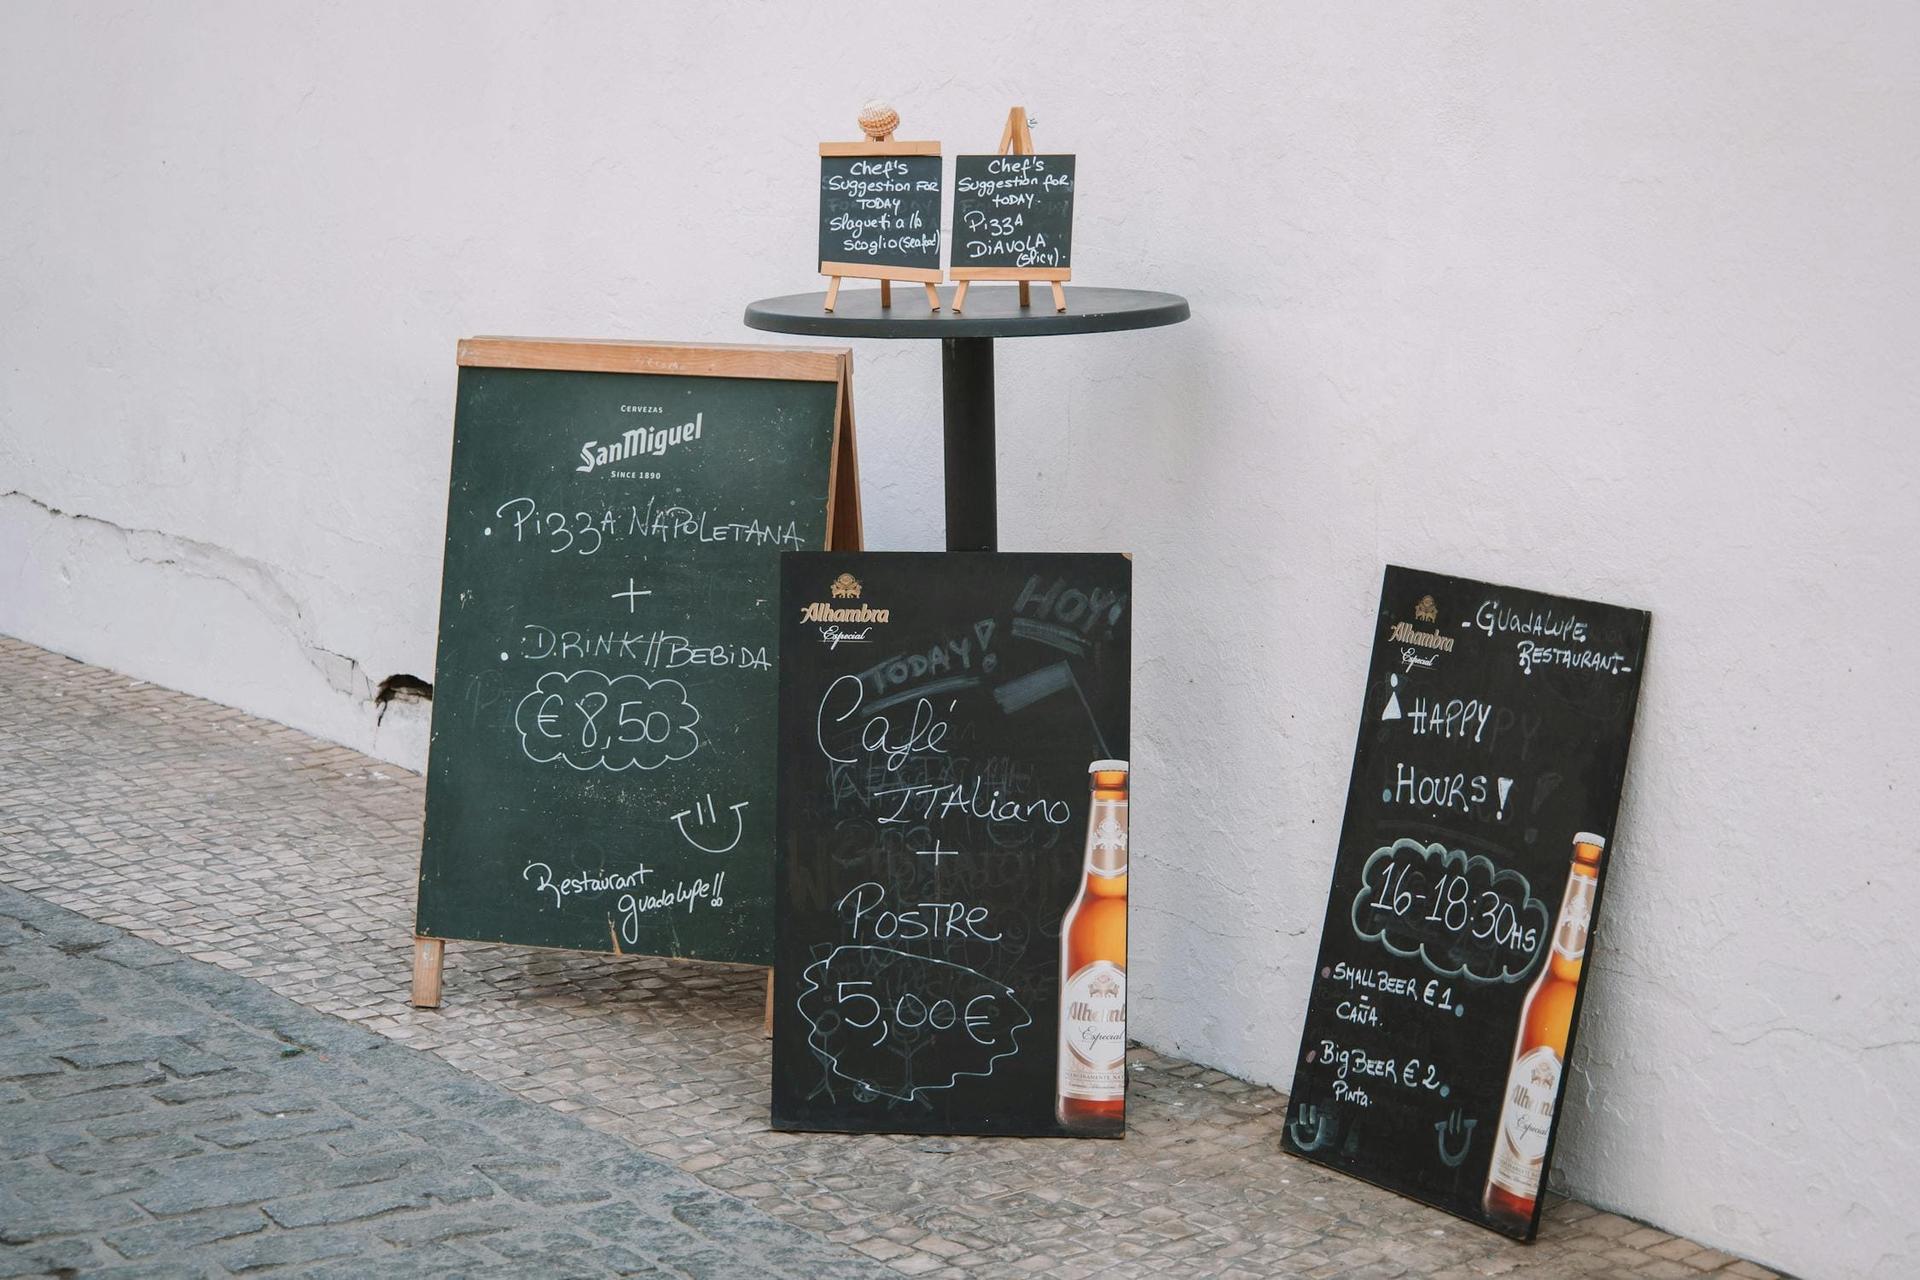 Chef's
Suggestion FOR
TODAY
Slaguetti alb
scoglio (seafood)
Chef's
Suggestion for
TODAY.
Pizza
DIAVOLA
(spicy).
CERVEZAS
SanMiguel
SINCE 1890
. Pizza NAPOLETANA
+
. DRINK//BEBIDA
€8,50
Restaurant
guadalupe!!
Alhambra
Especial
HOY!
TODAY!
Café
ITALiano
+
POSTRE
5,00€
Alhamb
Especial
Alhambra
Especial
-GUADALUPE
RESTAURANT-
¡HAPPY
HOURS!
16-18:30HS
SMALL BEER €1.
CAÑA.
Big BEER €2.
Pinta.
Alhamb
Especial